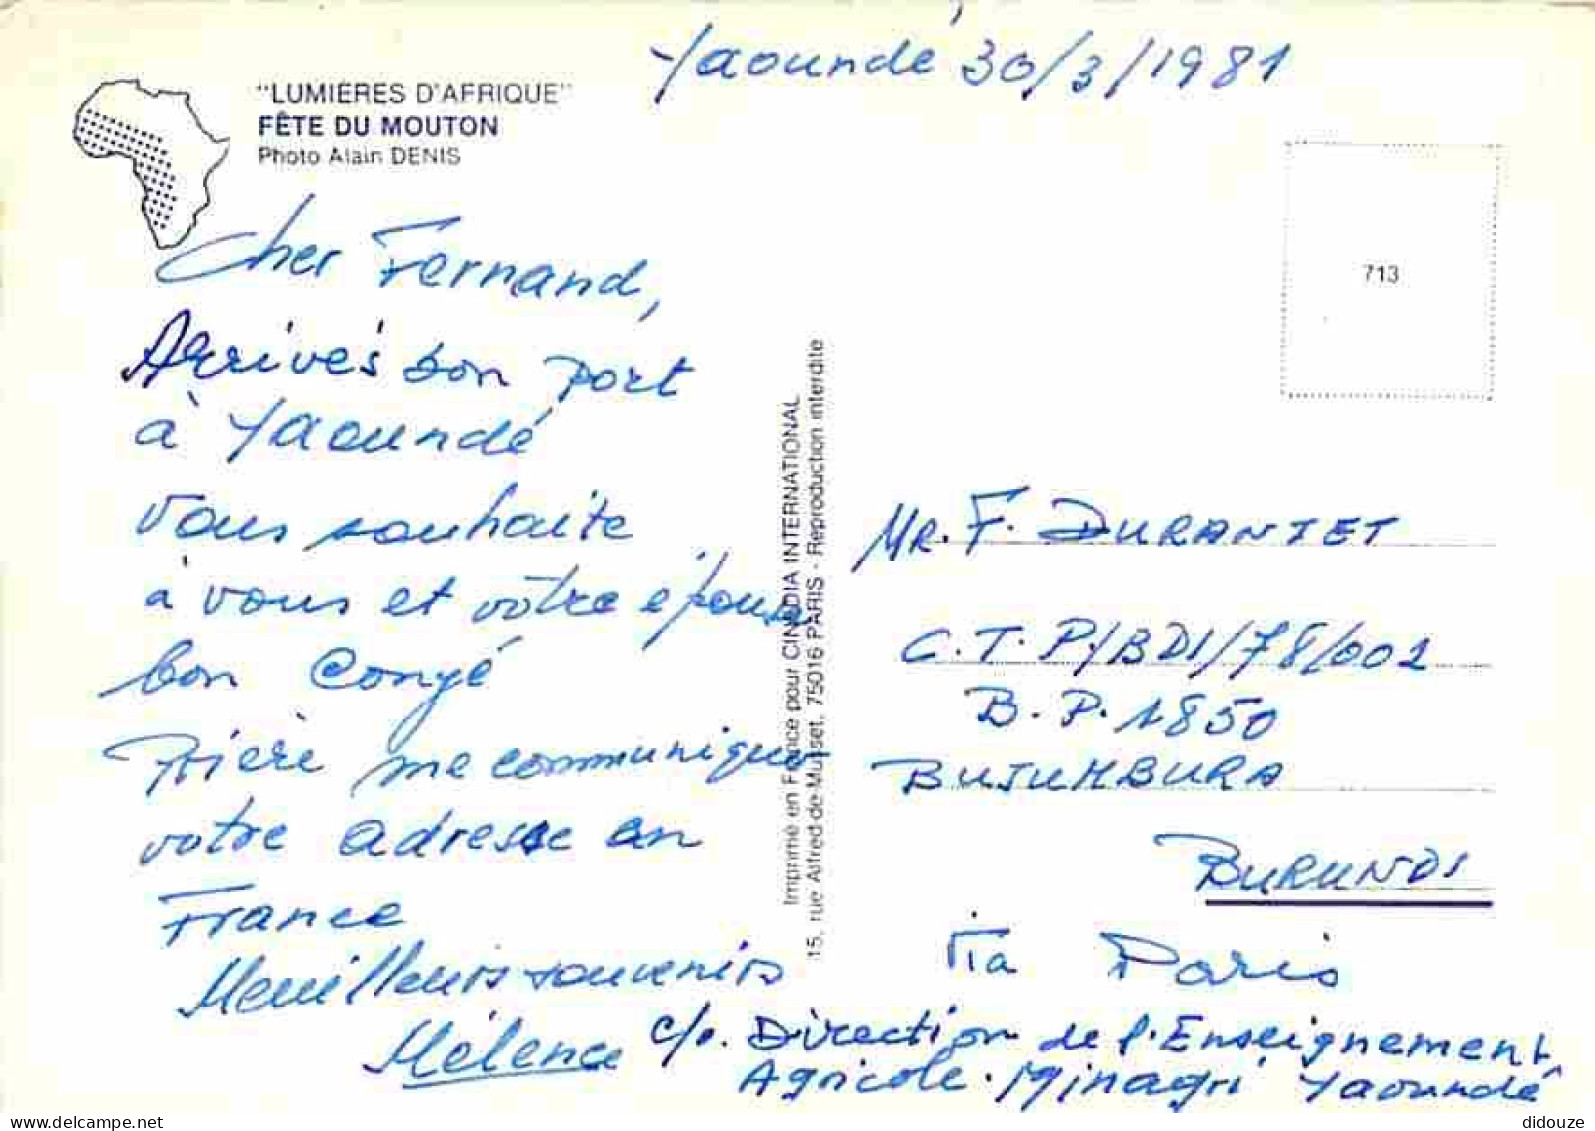 Yaoundé 30/3/1981
"LUMIÈRES D'AFRIQUE"
FÊTE DU MOUTON
Photo Alain DENIS
Cher Fernand,
Arrivés bon port
à Yaoundé
Vous souhaite
à vous et votre épouse
bon congé
Prière me communiquer
votre adresse en
France
Meuilleurs souvenirs
Mélence
Imprimé en France pour CINÉDIA INTERNATIONAL
15, rue Alfred-de-Musset, 75016 PARIS - Reproduction interdite
713
MR. F. DURANTET
C.T. P/BDI/78/001
B.P. 1850
BUJUMBURA
BURUNDI
Via Paris
c/o. Direction de l'Enseignement
Agricole. Minagri Yaoundé
delcampe.net
didouze